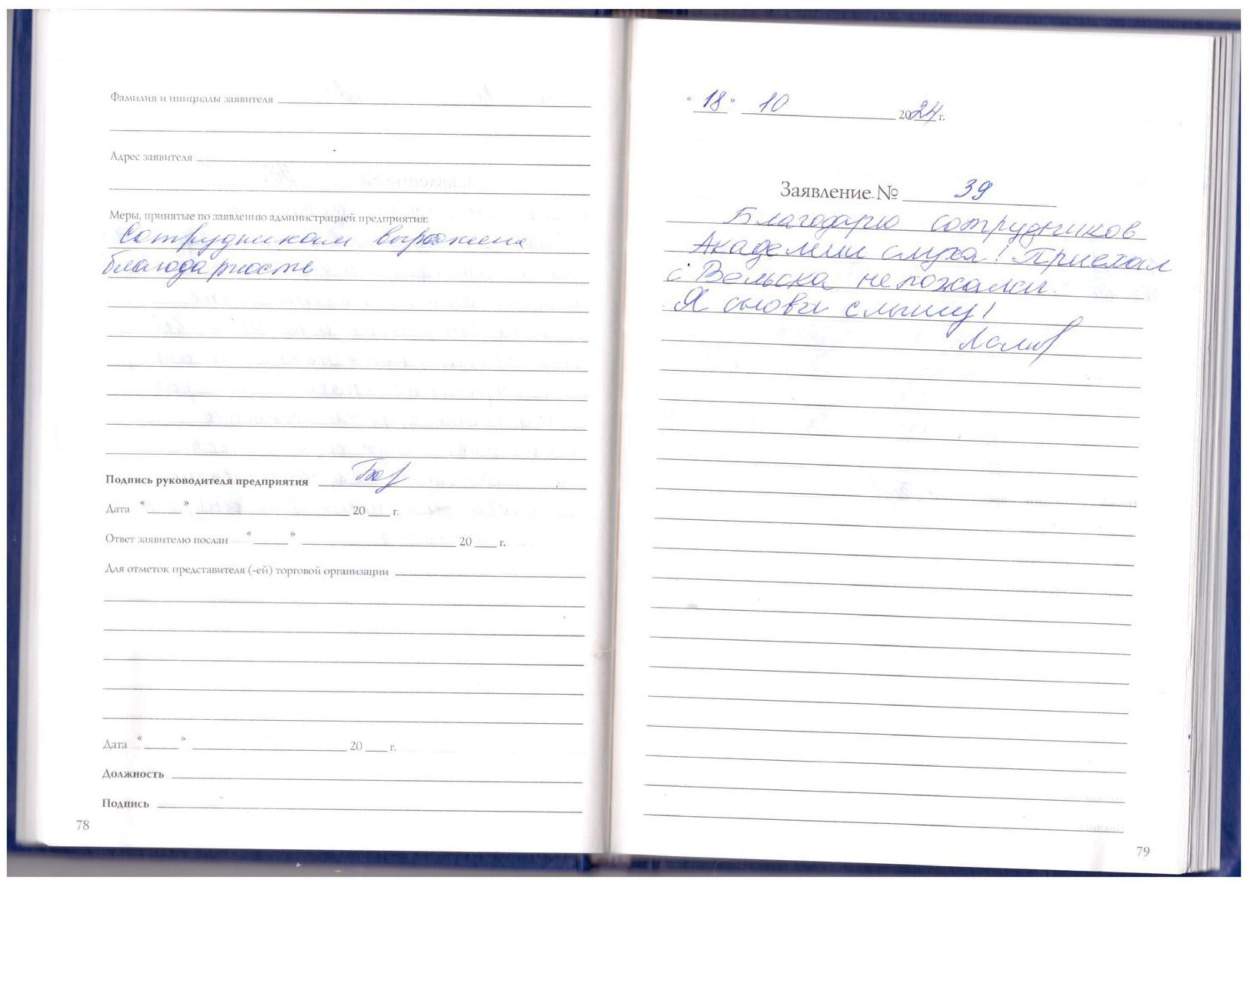 Фамилия и инициалы заявителя
Адрес заявителя
Меры, принятые по заявлению администрацией предприятия:
Сотрудникам выражена
благодарность
Подпись руководителя предприятия
Дата " " 20 г.
Ответ заявителю послан " " 20 г.
Для отметок представителя (-ей) торговой организации
Дата " " 20 г.
Должность
Подпись
78
"18" 10 2024 г.
Заявление № 39
Благодарю сотрудников
Академии слуха! Приехал
с Вельска не пожалел.
Я снова слышу!
79